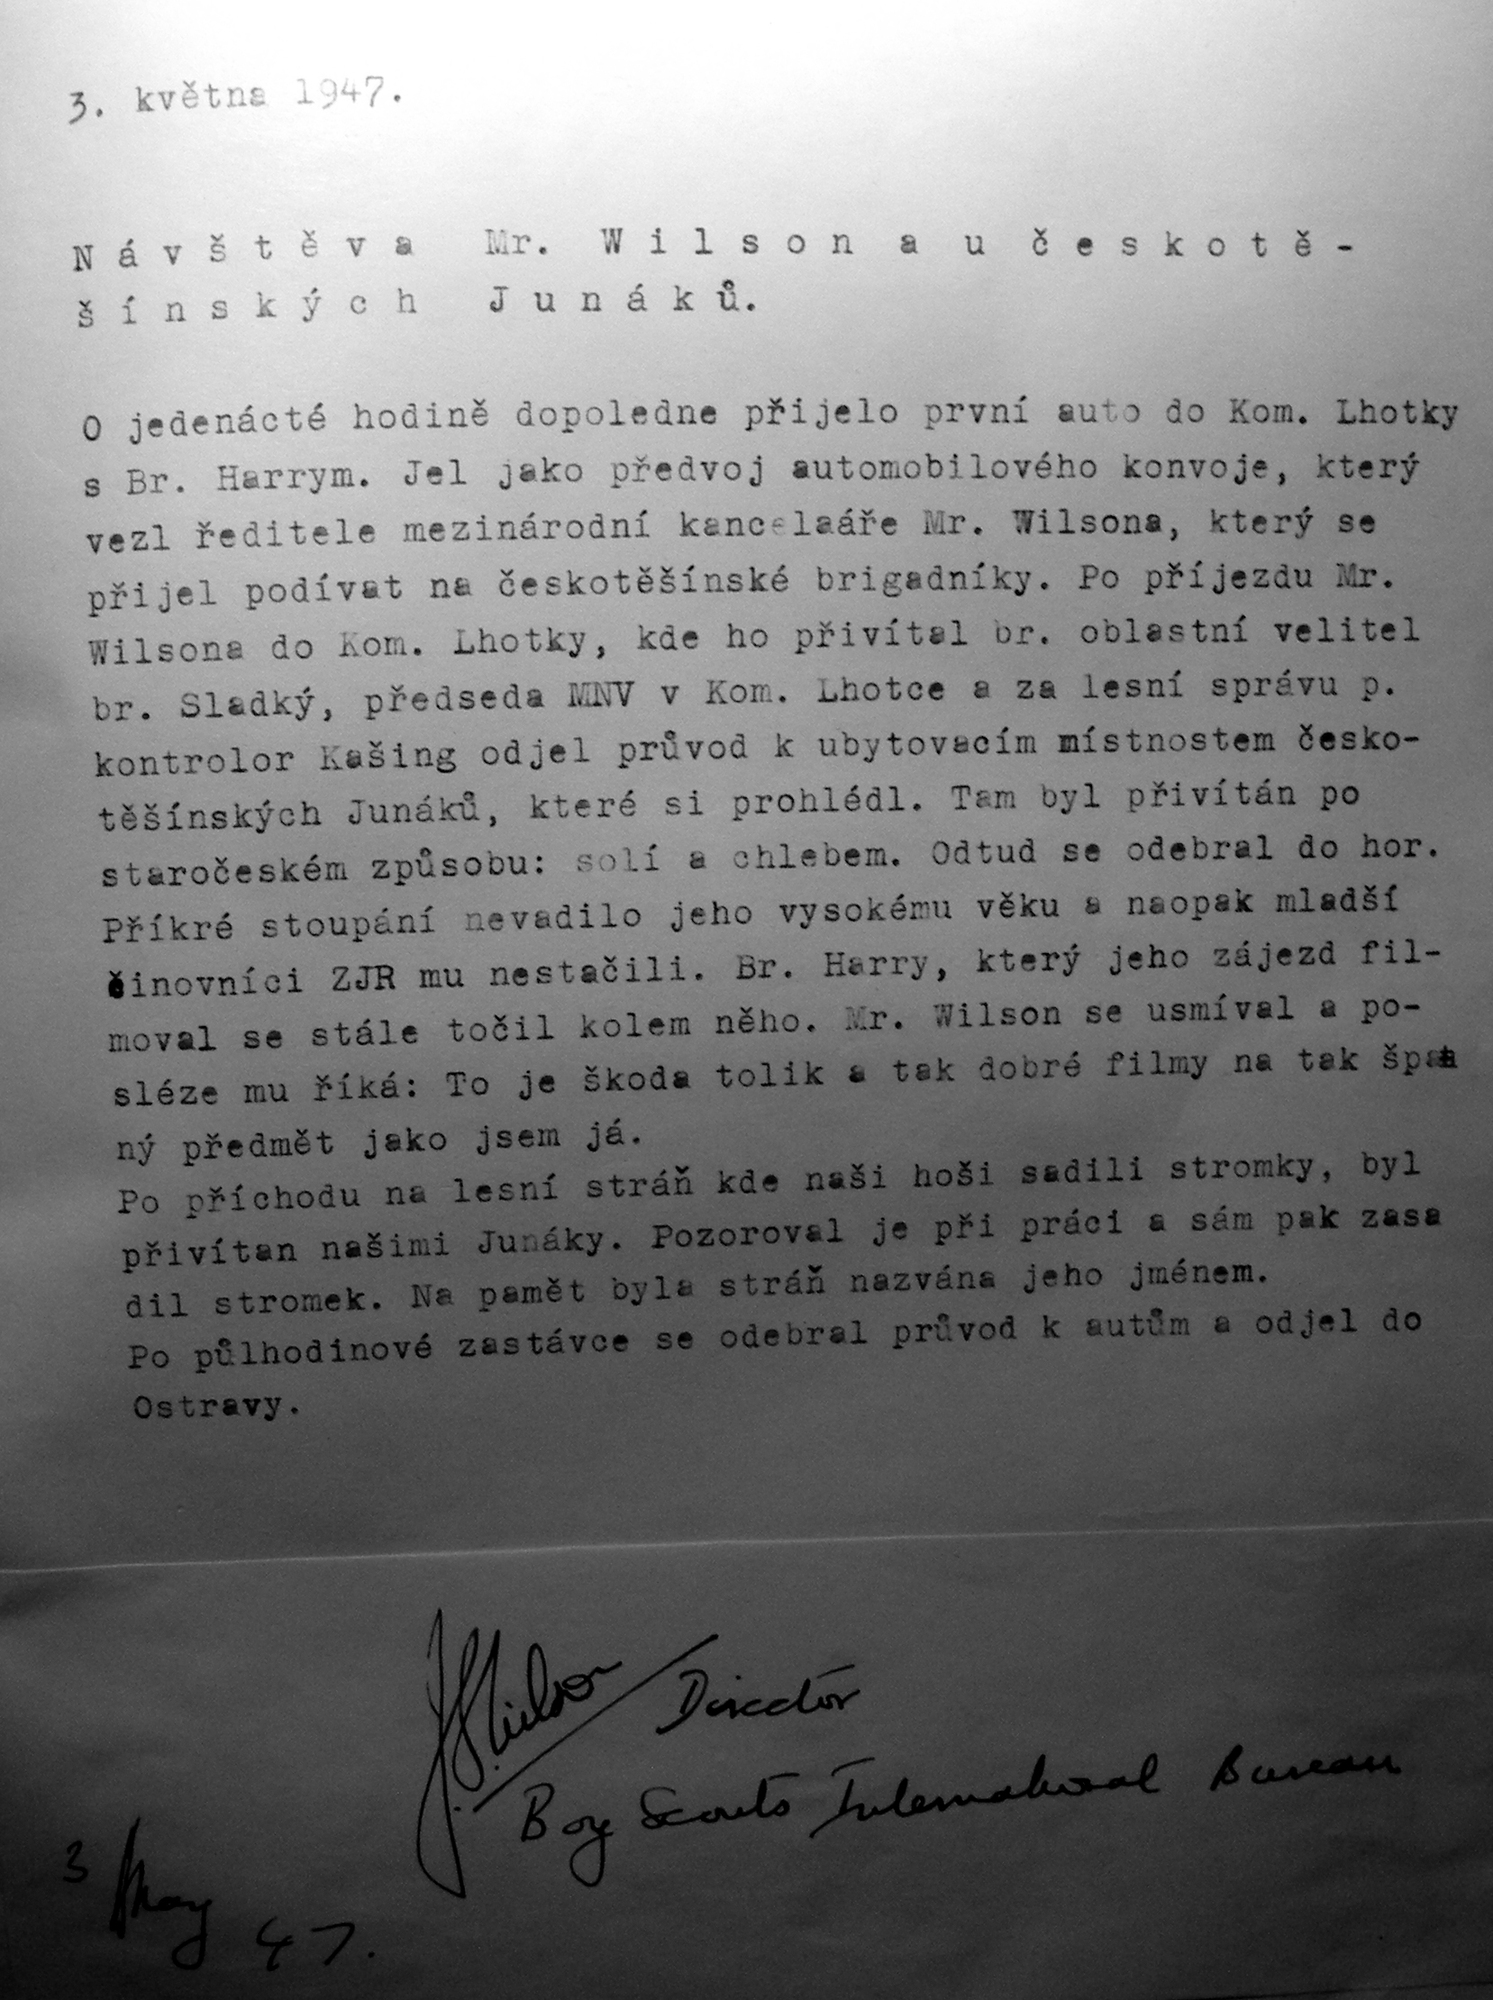 3. května 1947.
Návštěva Mr. Wilsona u českotě-
šínských Junáků.
O jedenácté hodině dopoledne přijelo první auto do Kom. Lhotky
s Br. Harrym. Jel jako předvoj automobilového konvoje, který
vezl ředitele mezinárodní kancelaáře Mr. Wilsona, který se
přijel podívat na českotěšínské brigadníky. Po příjezdu Mr.
Wilsona do Kom. Lhotky, kde ho přivítal br. oblastní velitel
br. Sladký, předseda MNV v Kom. Lhotce a za lesní správu p.
kontrolor Kašing odjel průvod k ubytovacím místnostem česko-
těšínských Junáků, které si prohlédl. Tam byl přivítán po
staročeském způsobu: solí a chlebem. Odtud se odebral do hor.
Příkré stoupání nevadilo jeho vysokému věku a naopak mladší
činovníci ZJR mu nestačili. Br. Harry, který jeho zájezd fil-
moval se stále točil kolem něho. Mr. Wilson se usmíval a po-
sléze mu říká: To je škoda tolik a tak dobré filmy na tak špat
ný předmět jako jsem já.
Po příchodu na lesní stráň kde naši hoši sadili stromky, byl
přivítan našimi Junáky. Pozoroval je při práci a sám pak zasa
dil stromek. Na pamět byla stráň nazvána jeho jménem.
Po půlhodinové zastávce se odebral průvod k autům a odjel do
Ostravy.
J. S. Wilson Director
Boy Scouts International Bureau
3 May 47.